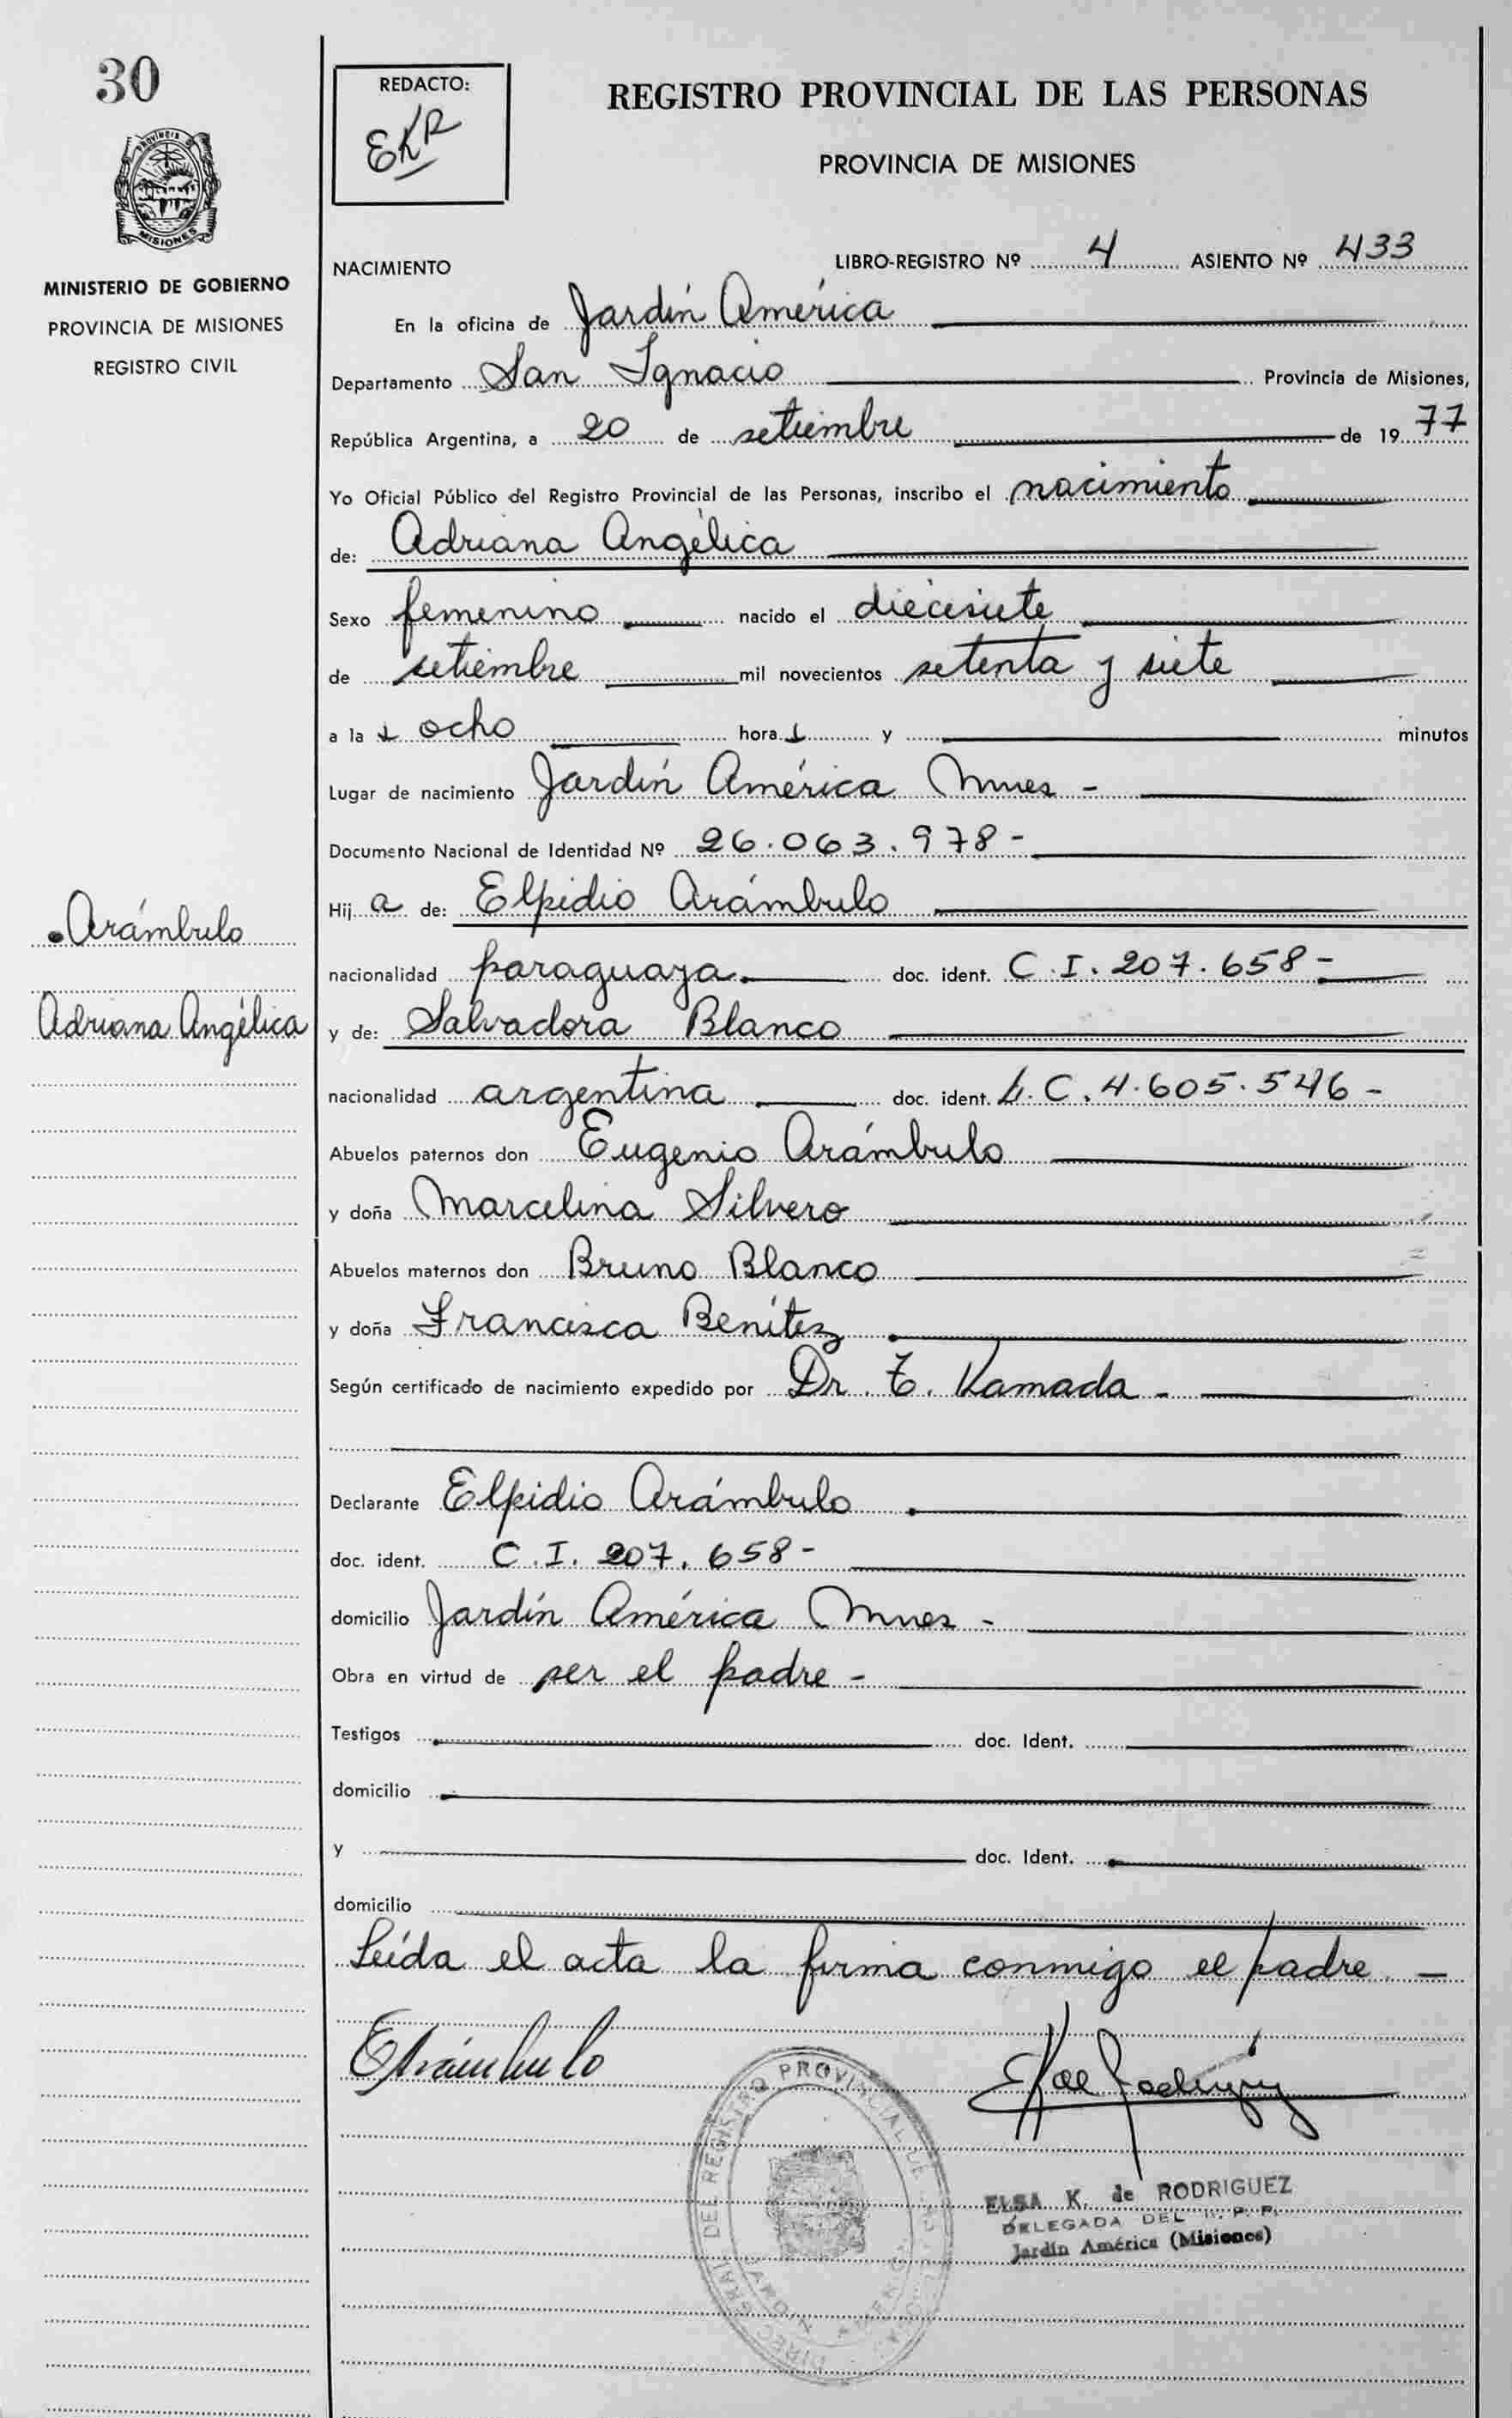 30
PROVINCIA
MISIONES
MINISTERIO DE GOBIERNO
PROVINCIA DE MISIONES
REGISTRO CIVIL
REDACTO:
EKR
REGISTRO PROVINCIAL DE LAS PERSONAS
PROVINCIA DE MISIONES
NACIMIENTO
LIBRO-REGISTRO Nº 4 ASIENTO Nº 433
En la oficina de Jardín América
Departamento San Ignacio Provincia de Misiones,
República Argentina, a 20 de setiembre de 1977
Yo Oficial Público del Registro Provincial de las Personas, inscribo el nacimiento
de: Adriana Angélica
Sexo femenino nacido el diecisiete
de setiembre mil novecientos setenta y siete
a las ocho horas y minutos
Lugar de nacimiento Jardín América Mnes -
Documento Nacional de Identidad Nº 26.063.978-
Hija de: Elpidio Arámbulo
Arámbulo
nacionalidad paraguaya doc. ident. C.I. 207.658-
Adriana Angélica
y de: Salvadora Blanco
nacionalidad argentina doc. ident. L.C. 4.605.546-
Abuelos paternos don Eugenio Arámbulo
y doña Marcelina Silvero
Abuelos maternos don Bruno Blanco
y doña Francisca Benítez
Según certificado de nacimiento expedido por Dr. T. Kamada -
Declarante Elpidio Arámbulo
doc. ident. C.I. 207.658-
domicilio Jardín América Mnes -
Obra en virtud de ser el padre -
Testigos doc. Ident.
domicilio
y doc. Ident.
domicilio
Leída el acta la firma conmigo el padre. -
EArámbulo
ELSA K. de RODRIGUEZ
DELEGADA DEL R. P. P.
Jardín América (Misiones)
DIREC GRAL DEL REGISTRO PROVINCIAL DE LAS